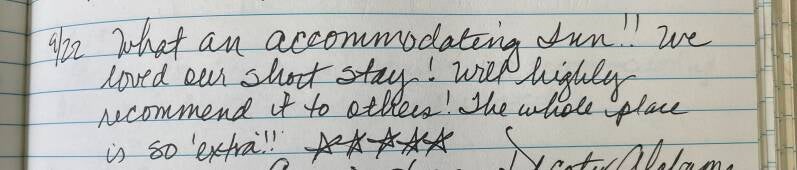 9/22 What an accommodating Inn!! We
loved our short stay! Will highly
recommend it to others! The whole place
is so 'extra'!! ☆☆☆☆☆